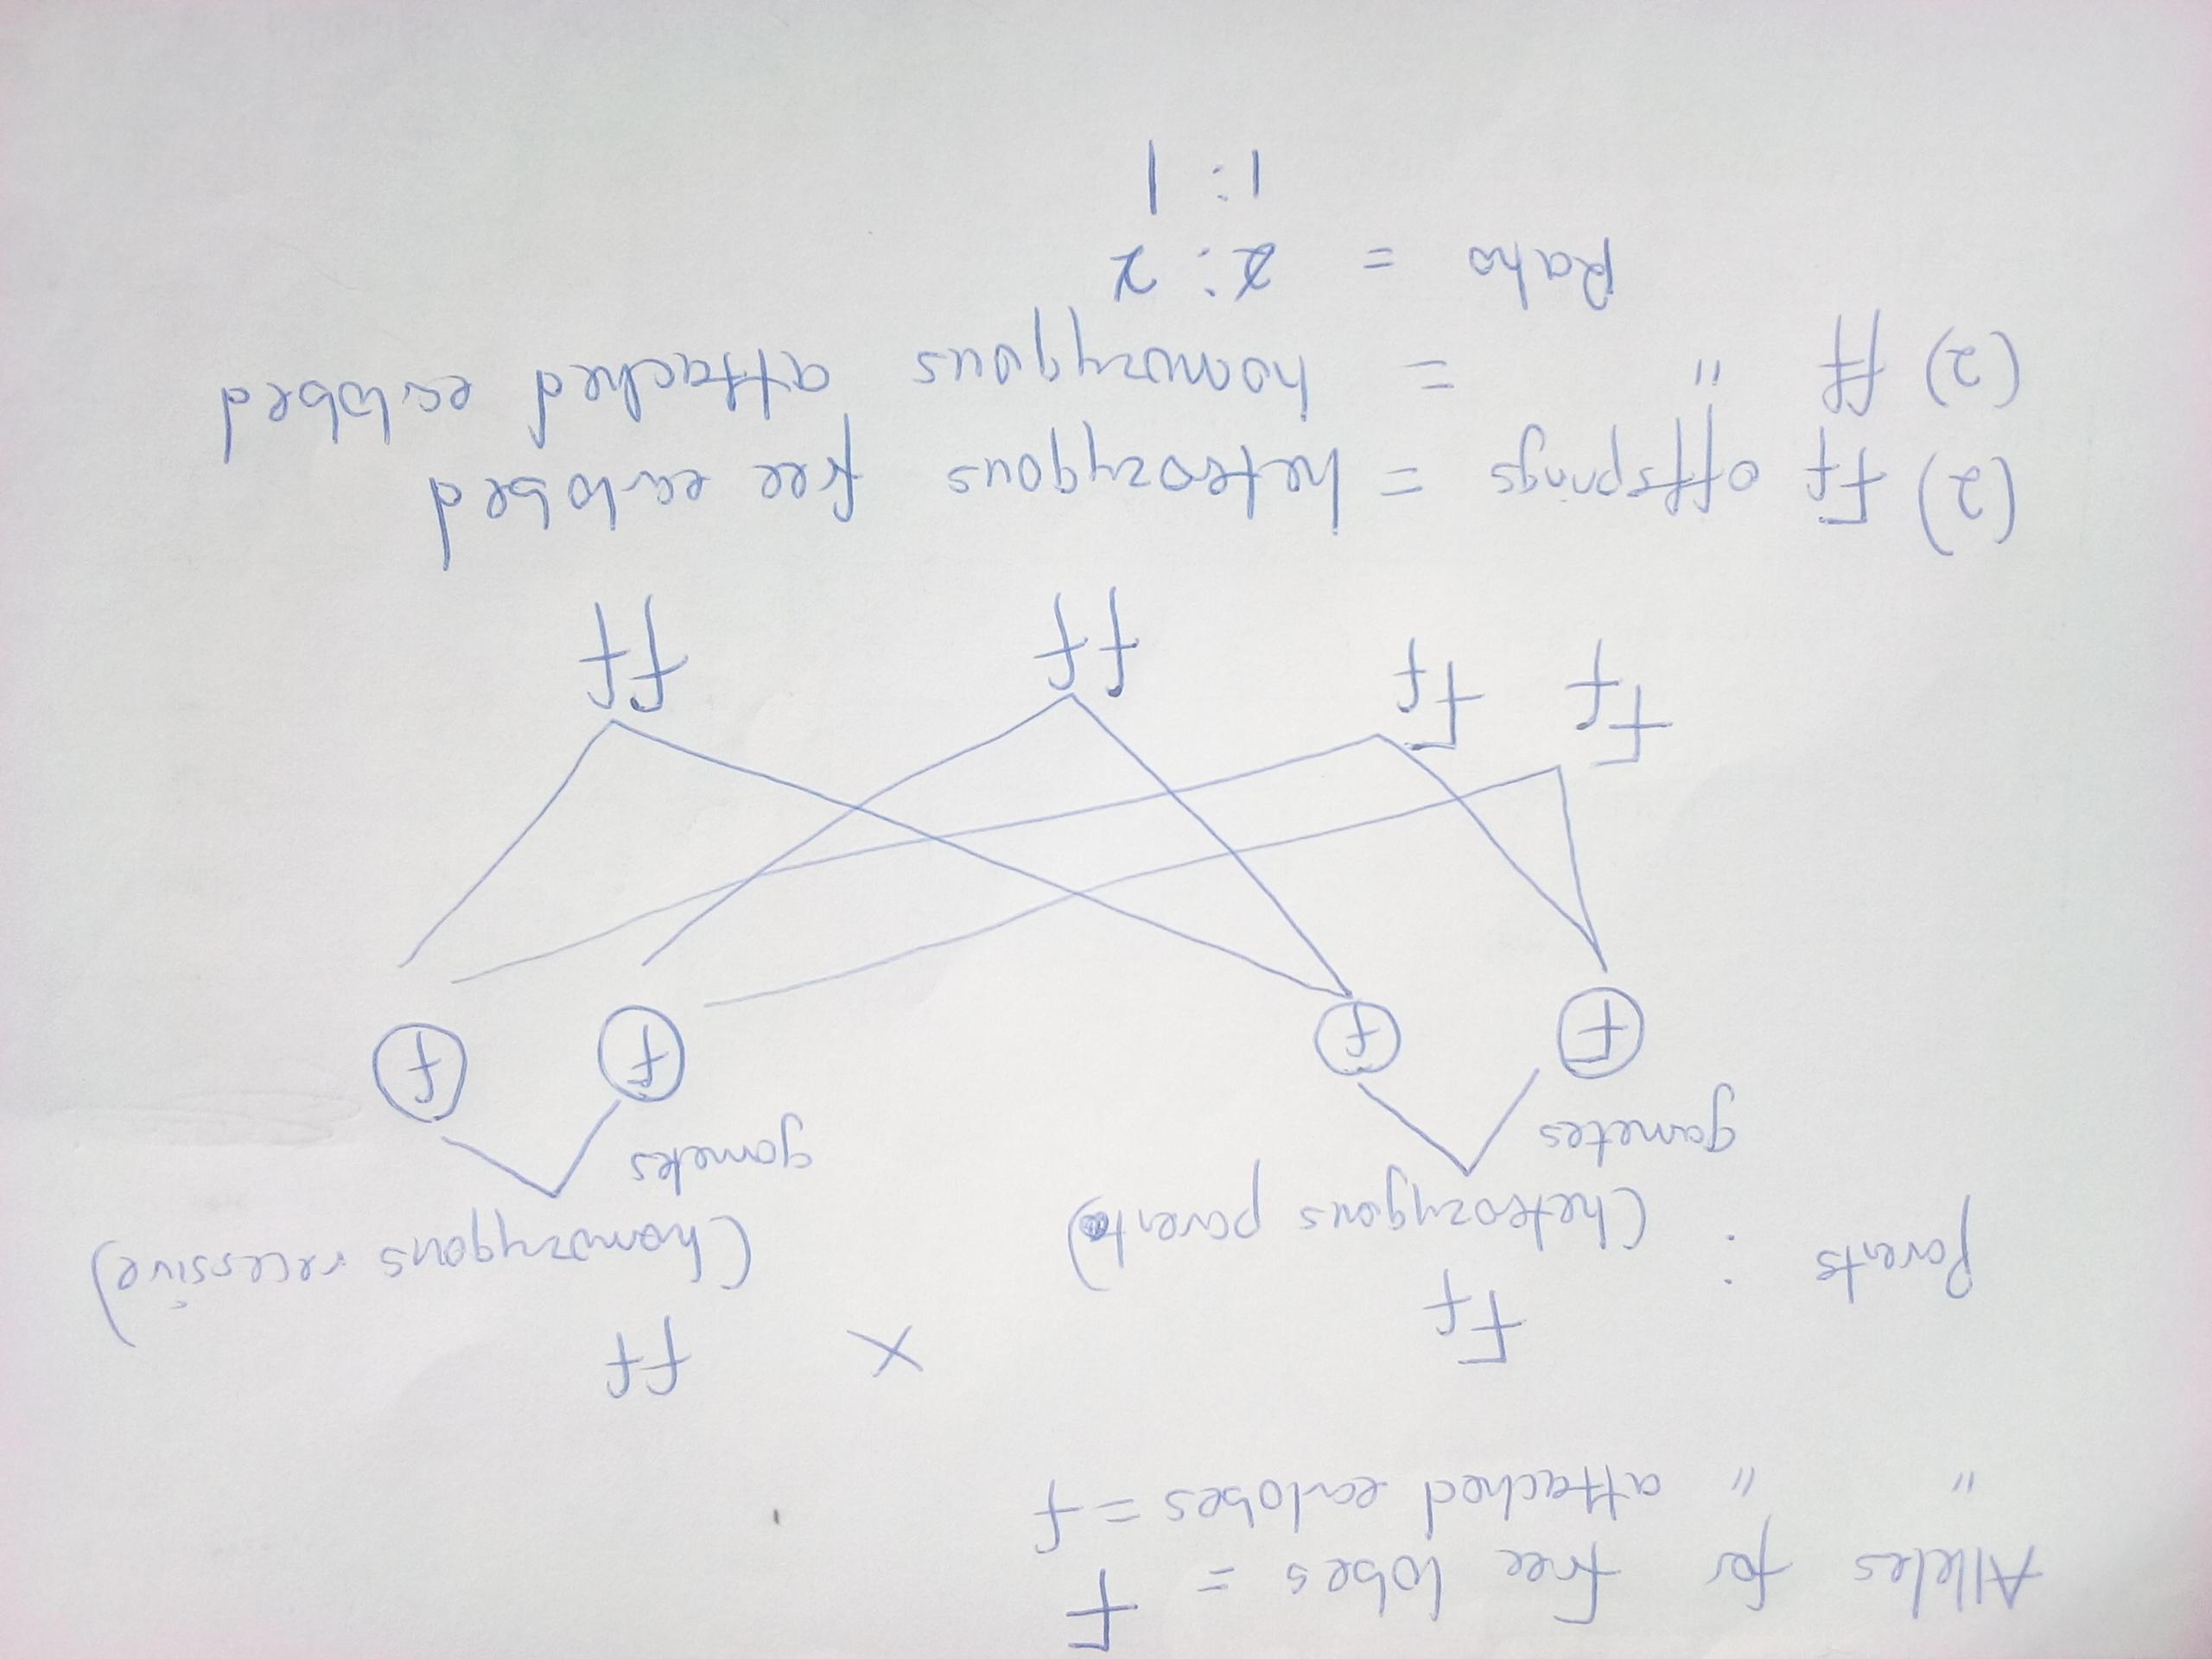 Alleles for free lobes = F
" " attached earlobes = f
Ff X ff
Parents : (heterozygous parent) (homozygous recessive)
gametes gametes
F f f f
Ff Ff ff ff
(2) Ff offsprings = heterozygous free earlobed
(2) ff " = homozygous attached earlobed
Ratio = 2 : 2
1 : 1